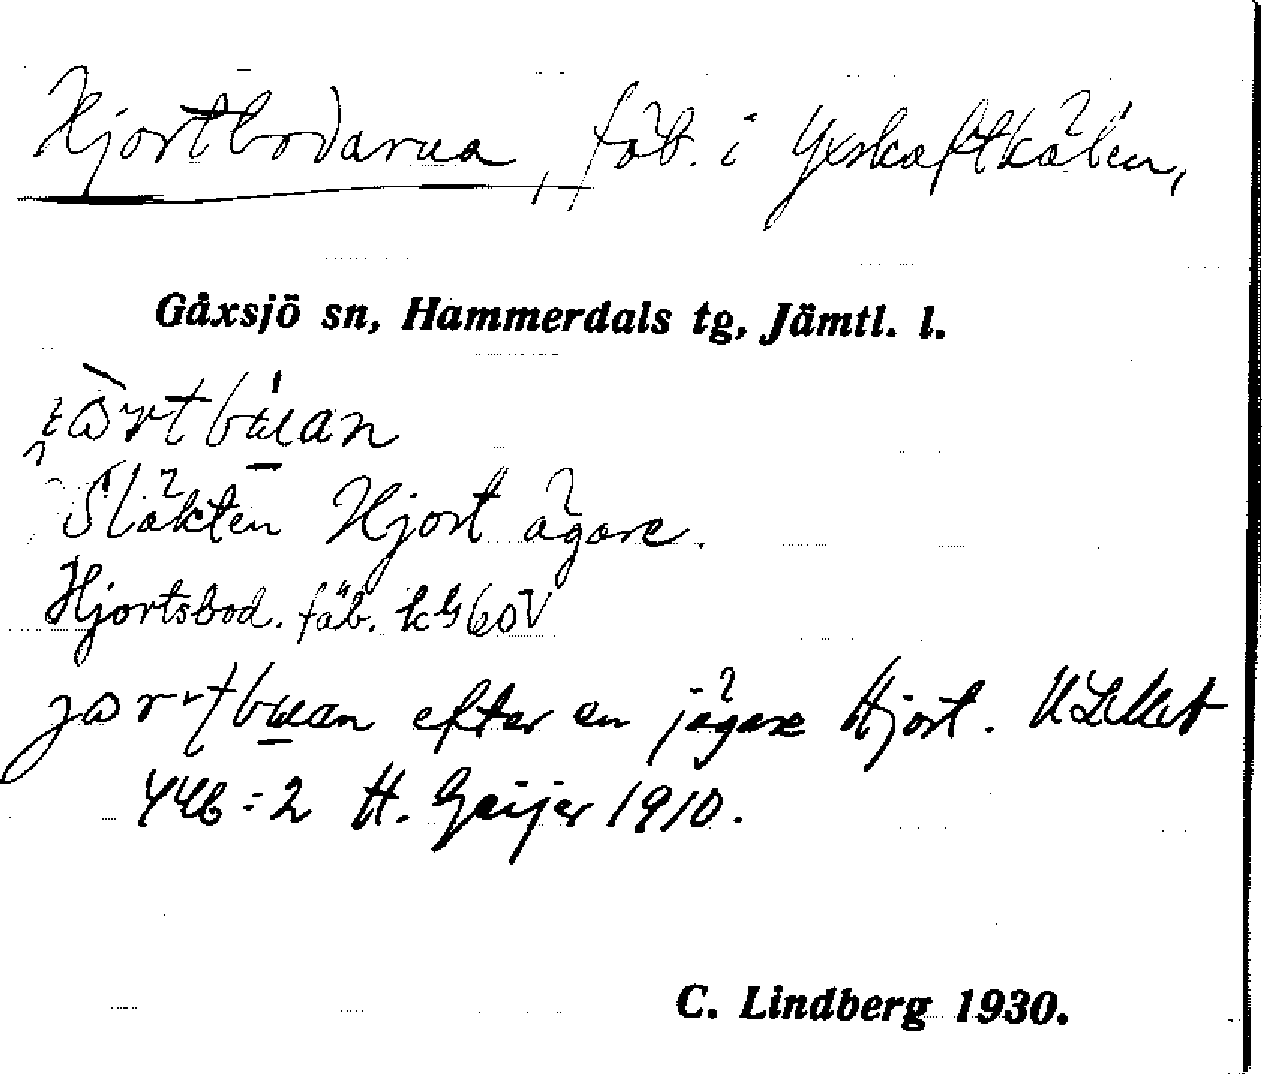 Hjortbodarna, fäb. i Yxskaftkälen,
Gåxsjö sn, Hammerdals tg, Jämtl. l.
Släkten Hjort ägare.
Hjortsbod. fäb. k 60 V
efter en jägare Hjort.
446:2 H. Geijer 1910.
C. Lindberg 1930.